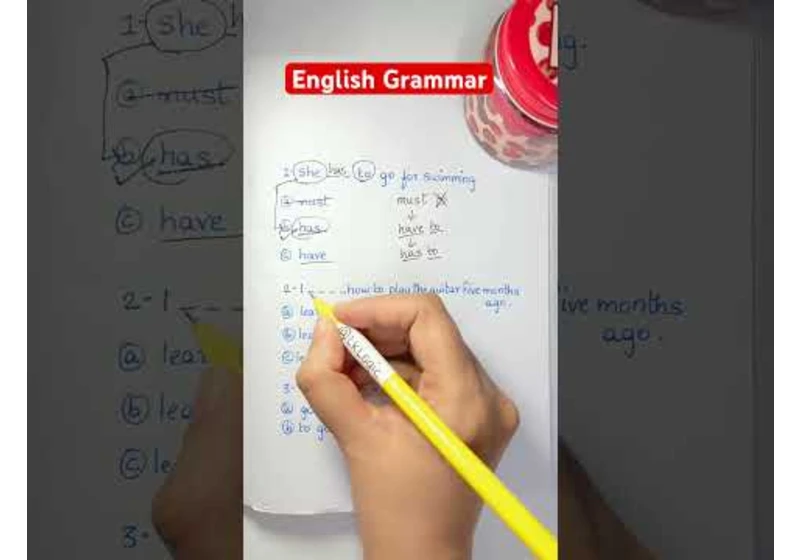 English Grammar
1- She has to go for swimming
ⓐ must must
ⓑ has have to
ⓒ have has to
2- I _ _ _ _ how to play the guitar five months
ago.
ⓐ lea
ⓑ lea
ⓒ le
3-
ⓐ go
ⓑ to go
@LKLogic